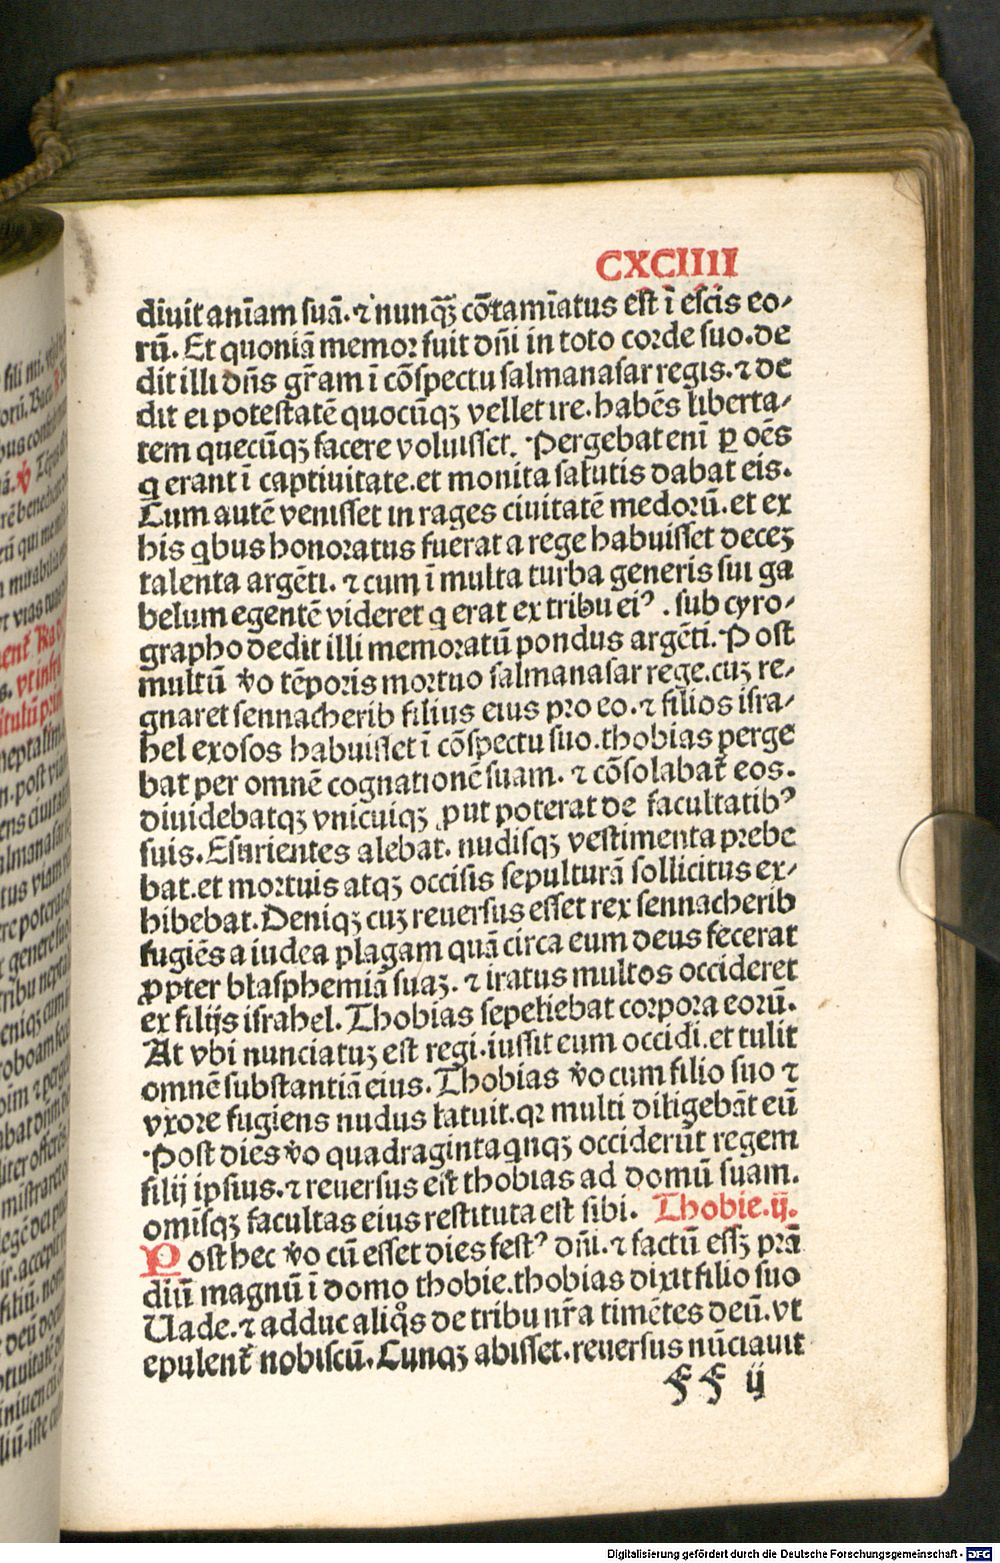 CXCIIII
diuit anīam suā. ⁊ nunqꝫ cōtamīatus est ī escis eo-
rū. Et quoniā memor fuit dn̄i in toto corde suo. de
dit illi dn̄s gr̄am ī cōspectu salmanasar regis. ⁊ de
dit ei potestatē quocūqꝫ vellet ire. habēs liberta-
tem quecūqꝫ facere voluisset. Pergebat enī ꝑ oēs
q̄ erant ī captiuitate. et monita salutis dabat eis.
Cum autē venisset in rages ciuitatē medorū. et ex
his qͥbus honoratus fuerat a rege habuisset deceꝫ
talenta argēti. ⁊ cum ī multa turba generis sui ga
belum egentē videret q̄ erat ex tribu eiꝰ. sub cyro-
grapho dedit illi memoratū pondus argēti. Post
multū v̄o tēporis mortuo salmanasar rege. cuꝫ re-
gnaret sennacherib filius eius pro eo. ⁊ filios isra-
hel exosos habuisset ī cōspectu suo. thobias perge
bat per omnē cognationē suam. ⁊ cōsolabat̄ eos.
diuidebatqꝫ vnicuiqꝫ ꝓut poterat de facultatibꝰ
suis. Esurientes alebat. nudisqꝫ vestimenta prebe
bat. et mortuis atqꝫ occisis sepulturā sollicitus ex-
hibebat. Deniqꝫ cuꝫ reuersus esset rex sennacherib
fugiēs a iudea plagam quā circa eum deus fecerat
ꝓpter blasphemiā suaꝫ. ⁊ iratus multos occideret
ex filijs israhel. Thobias sepeliebat corpora eorū.
At vbi nunciatuꝫ est regi. iussit eum occidi. et tulit
omnē substantiā eius. Thobias v̄o cum filio suo ⁊
vxore fugiens nudus latuit. qꝛ multi diligebāt eū
Post dies v̄o quadragintaqͥnqꝫ occiderūt regem
filij ipsius. ⁊ reuersus est thobias ad domū suam.
omīsqꝫ facultas eius restituta est sibi. Thobie. ij.
Post hec v̄o cū esset dies festꝰ dn̄i. ⁊ factū essꝫ prā
diū magnū ī domo thobie. thobias dixit filio suo
Uade. ⁊ adduc aliqͦs de tribu nr̄a timētes deū. vt
epulent̄ nobiscū. Cunqꝫ abisset. reuersus nūciauit
ff ij
Digitalisierung gefördert durch die Deutsche Forschungsgemeinschaft - DFG